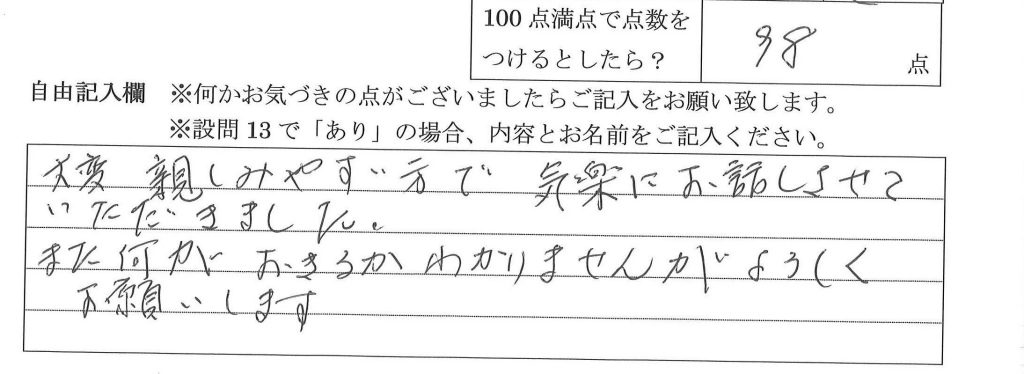 100点満点で点数を
つけるとしたら？
98 点
自由記入欄 ※何かお気づきの点がございましたらご記入をお願い致します。
※設問13で「あり」の場合、内容とお名前をご記入ください。
大変 親しみやすい方で 気楽にお話しさせて
いただきました。
また何が おきるかわかりませんがよろしく
お願いします